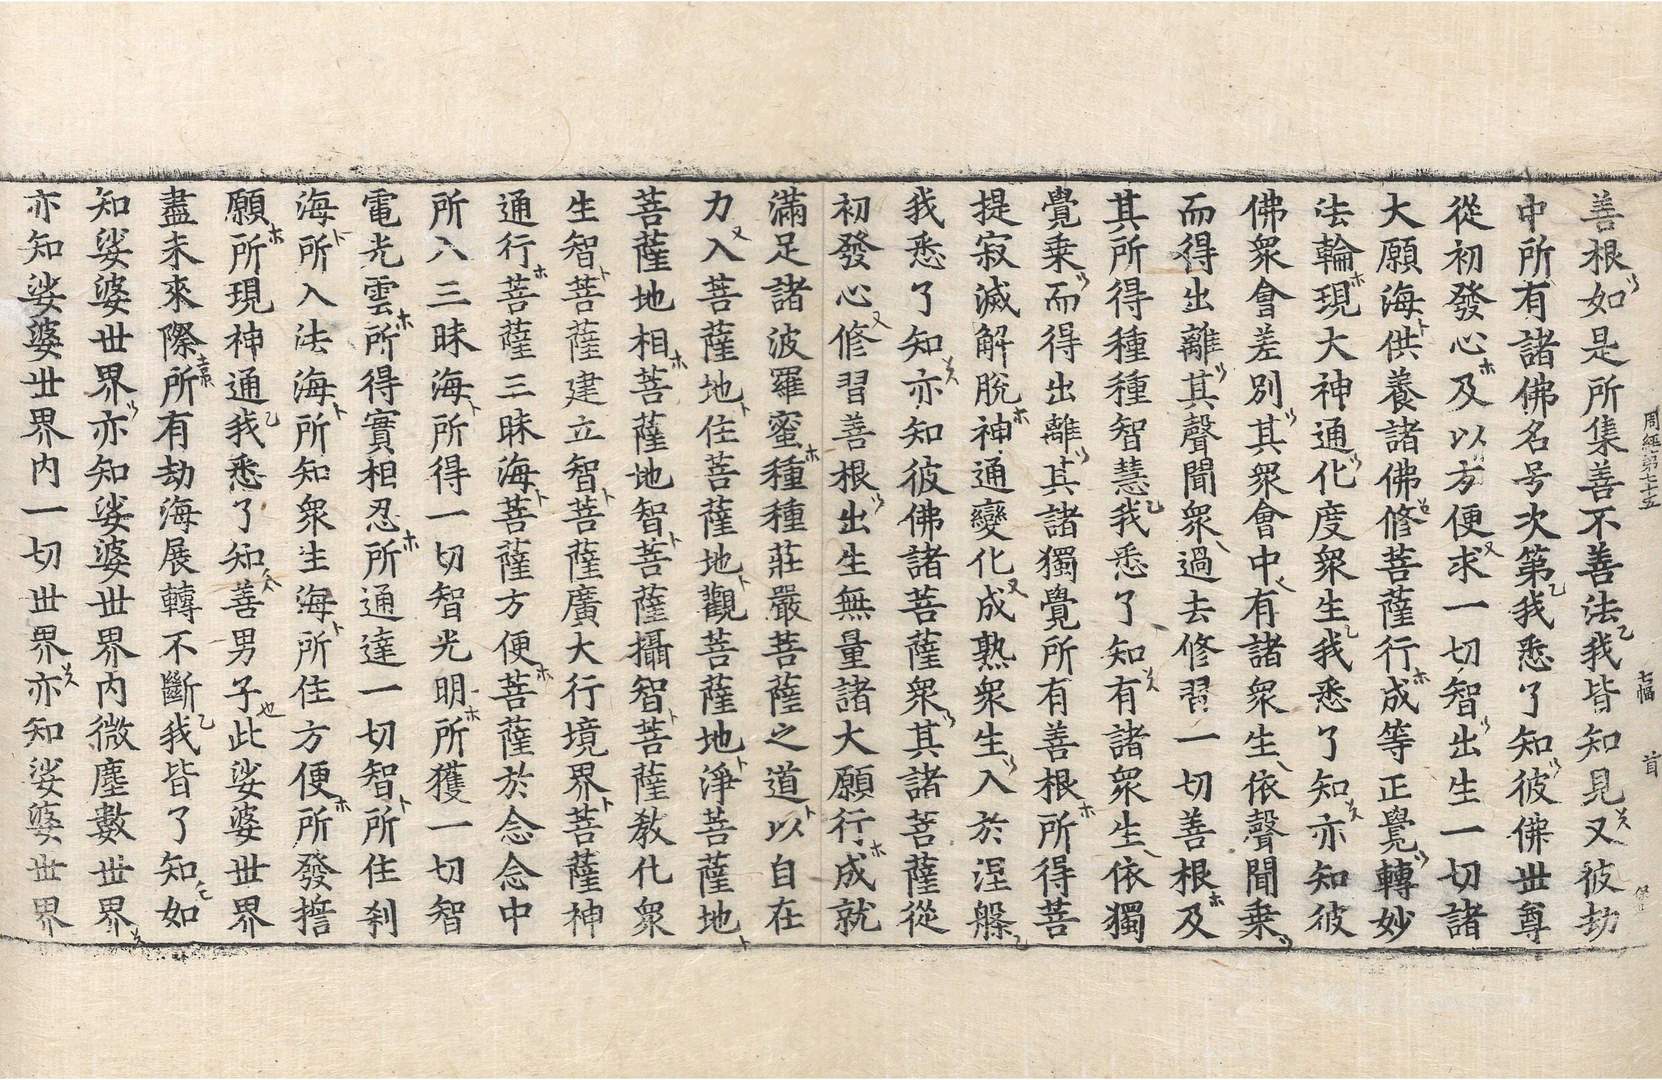 周經第七十五 七幅 首
善根如是所集善不善法我皆知見又彼劫
中所有諸佛名号次第我悉了知彼佛世尊
從初發心及以方便求一切智出生一切諸
大願海供養諸佛修菩薩行成等正覺轉妙
法輪現大神通化度衆生我悉了知亦知彼
佛衆會差別其衆會中有諸衆生依聲聞乗
而得出離其聲聞衆過去修習一切善根及
其所得種種智慧我悉了知有諸衆生依獨
覺乗而得出離其諸獨覺所有善根所得菩
提寂滅解脫神通變化成熟衆生入於涅槃
我悉了知亦知彼佛諸菩薩衆其諸菩薩從
初發心修習善根出生無量諸大願行成就
滿足諸波羅蜜種種莊嚴菩薩之道以自在
力入菩薩地住菩薩地觀菩薩地淨菩薩地
菩薩地相菩薩地智菩薩攝智菩薩教化衆
生智菩薩建立智菩薩廣大行境界菩薩神
通行菩薩三昧海菩薩方便菩薩於念念中
所入三昧海所得一切智光明所獲一切智
電光雲所得實相忍所通達一切智所住刹
海所入法海所知衆生海所住方便所發揞
願所現神通我悉了知善男子此娑婆世界
盡未來際所有劫海展轉不斷我皆了知如
知娑婆世界亦知娑婆世界內微塵數世界
亦知娑婆世界內一切世界亦知娑婆世界